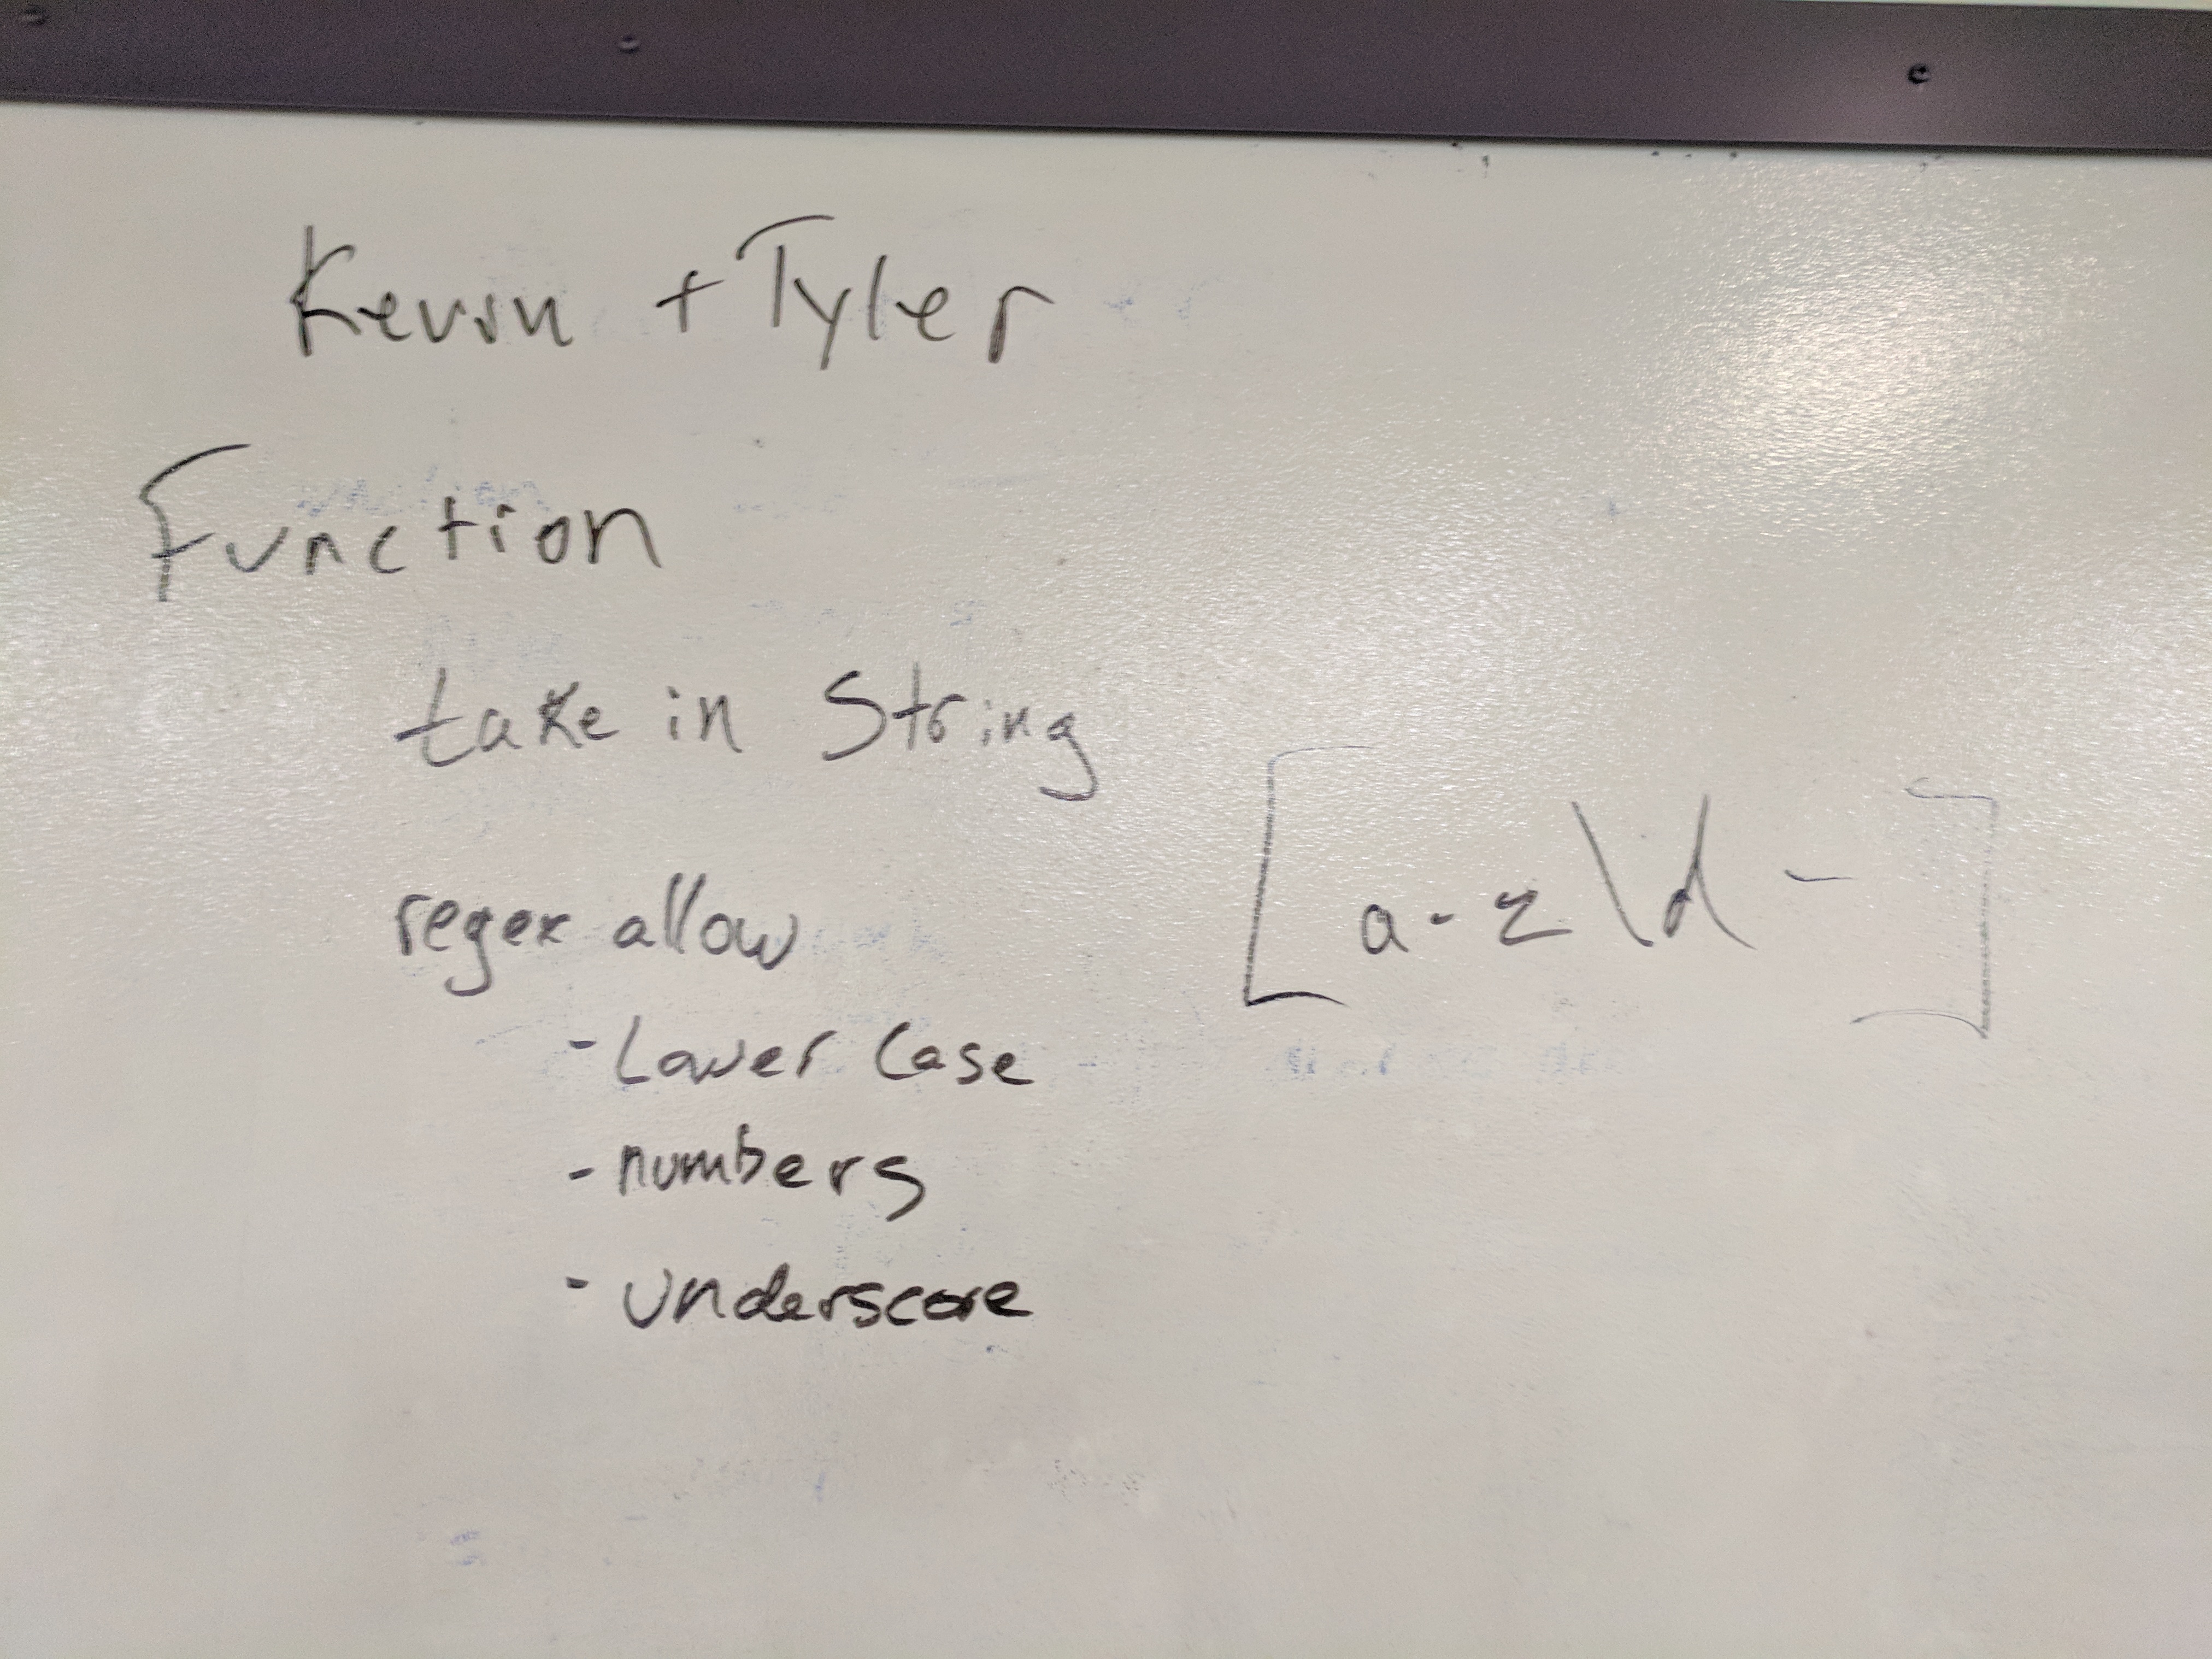 Kevin + Tyler
Function
take in String
regex allow
[a-z\d-]
- Lower Case
- numbers
- underscore